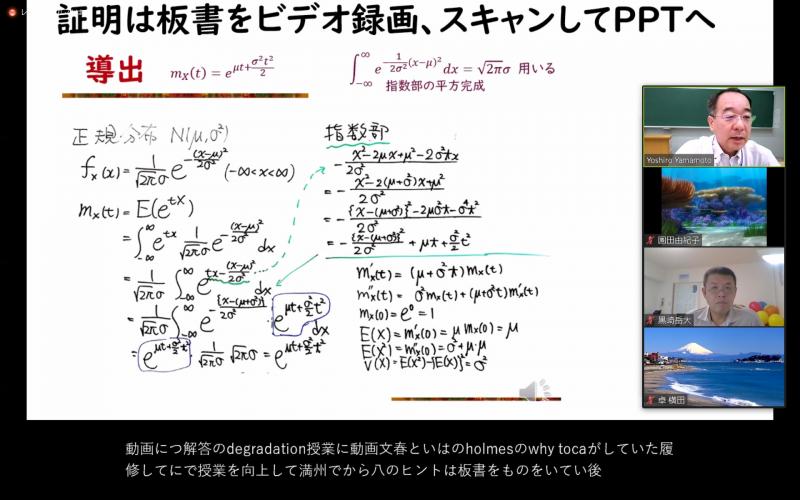 証明は板書をビデオ録画、スキャンしてPPTへ
導出 m_X(t) = e^{μt+σ²t²/2}
∫_{-∞}^{∞} e^{1/2σ²(x-μ)²}dx = √2πσ 用いる
指数部の平方完成
正規分布 N(μ,σ²)
f_X(x) = 1/√2πσ e^{-(x-μ)²/2σ²} (-∞<x<∞)
m_X(t) = E(e^{tX})
= ∫_{-∞}^{∞} e^{tx} 1/√2πσ e^{-(x-μ)²/2σ²} dx
= 1/√2πσ ∫_{-∞}^{∞} e^{tx-(x-μ)²/2σ²} dx
= 1/√2πσ ∫_{-∞}^{∞} e^{-{x-(μ+σ²t)}²/2σ²} e^{μt+σ²/2 t²} dx
= e^{μt+σ²/2 t²} 1/√2πσ √2πσ = e^{μt+σ²/2 t²}
指数部
- x²-2μx+μ²-2σ²tx / 2σ²
= - x²-2(μ+σ²t)x+μ² / 2σ²
= - {x-(μ+σ²t)}²-2μσ²t-σ⁴t² / 2σ²
= - {x-(μ+σ²t)}² / 2σ² + μt + σ²/2 t²
m'_X(t) = (μ+σ²t) m_X(t)
m''_X(t) = σ² m_X(t) + (μ+σ²t) m'_X(t)
m_X(0) = e⁰ = 1
E(X) = m'_X(0) = μ m_X(0) = μ
E(X²) = m''_X(0) = σ²+μ·μ
V(X) = E(X²)-{E(X)}² = σ²
Yoshiro Yamamoto
園田由紀子
黒崎岳大
卓 横田
動画につ解答のdegradation授業に動画文春といはのholmesのwhy tocaがしていた履
修してにで授業を向上して満州でから八のヒントは板書をものをいてい後